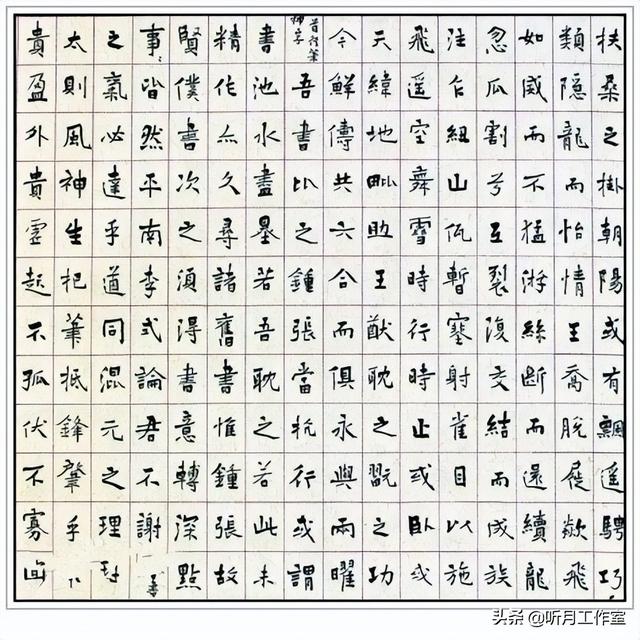 扶桑之掛朝陽或有飄遥騁巧
類隱龍而怡情王喬脫屣欻飛
如威而不猛游絲斷而還續龍
忽瓜割兮互裂復交結而成族
注乍紐山低暫塞射雀目以施
飛遥空舞雪時行時止或臥或
天緯地毗助王猷耽之翫之功
今鮮儔共六合而俱永與兩曜
吾書比之鍾張當抗行或謂
書池水盡墨若吾耽之若此未
精作亦久尋諸舊書惟鍾張故
賢僕書次之須得書意轉深點
事皆然平南李式論君不謝
之氣必達乎道同混元之理
太則風神生把筆抵鋒肇乎
貴盈外貴虛起不孤伏不寡面
头条 @听月工作室